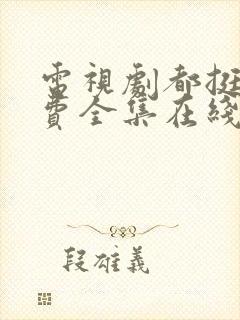 電視劇都挺
費全集在綫
段雄義